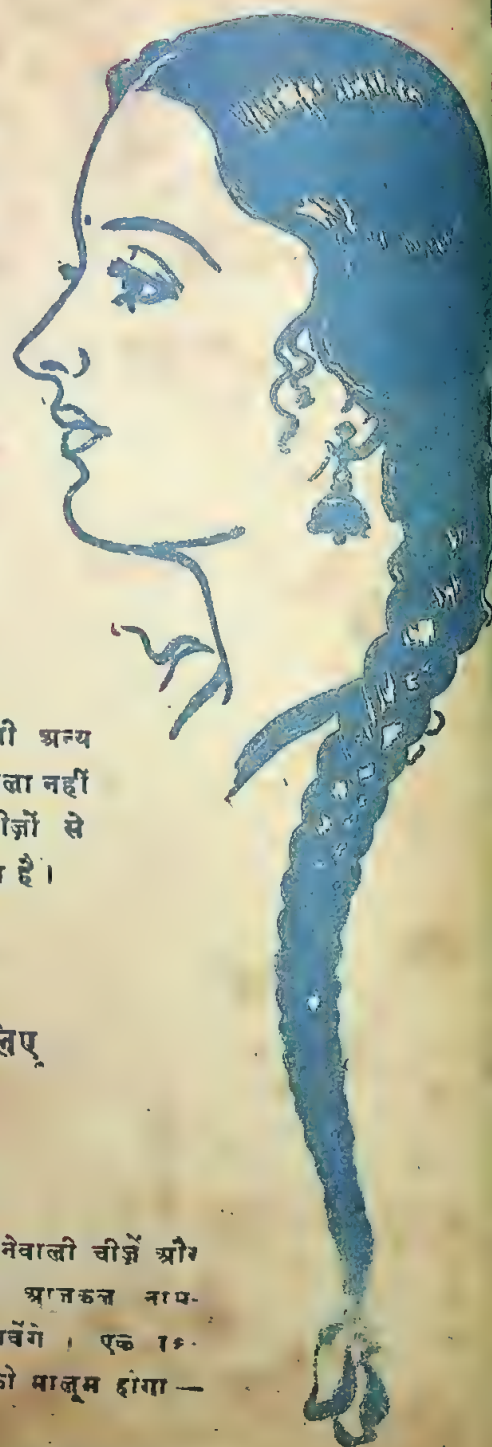 ी अन्य
ला नहीं
ीज़ों से
है।
लिए
नेवाली चीज़ें और
आजकल नाप-
एक
को मालूम होगा —